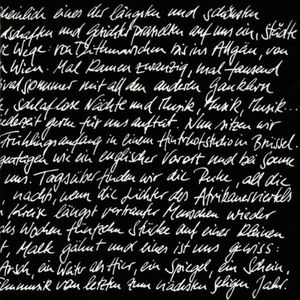 heinlich eines der längsten und schönsten
schaften und Gesichter prasselten auf uns ein, Städte
Wege: von Dithmarschen bis ins Allgäu, von
Wien. Mal kamen zwanzig, mal tausend
ivalsommer mit all den andern Gauklern
schlaflose Nächte und Musik, Musik, Musik...
jederzeit gern für uns auftat. Nun sitzen wir
Frühlingsanfang in einem Hinterhofstudio in Brüssel.
wie ein englischer Vorort und bei Sonne
uns. Tagsüber finden wir die Ruhe, all die
nachts, wenn die Lichter des Afrikanerviertels
Kreis längst vertrauter Menschen wieder
Wochen fünfzehn Stücke auf einer kleinen
Malk gähnt und eines ist uns gewiss:
Arsch, ein Wahr als Hier, ein Spiegel, ein Schein,
filmmusik vom letzten zum nächsten seligen Jahr.